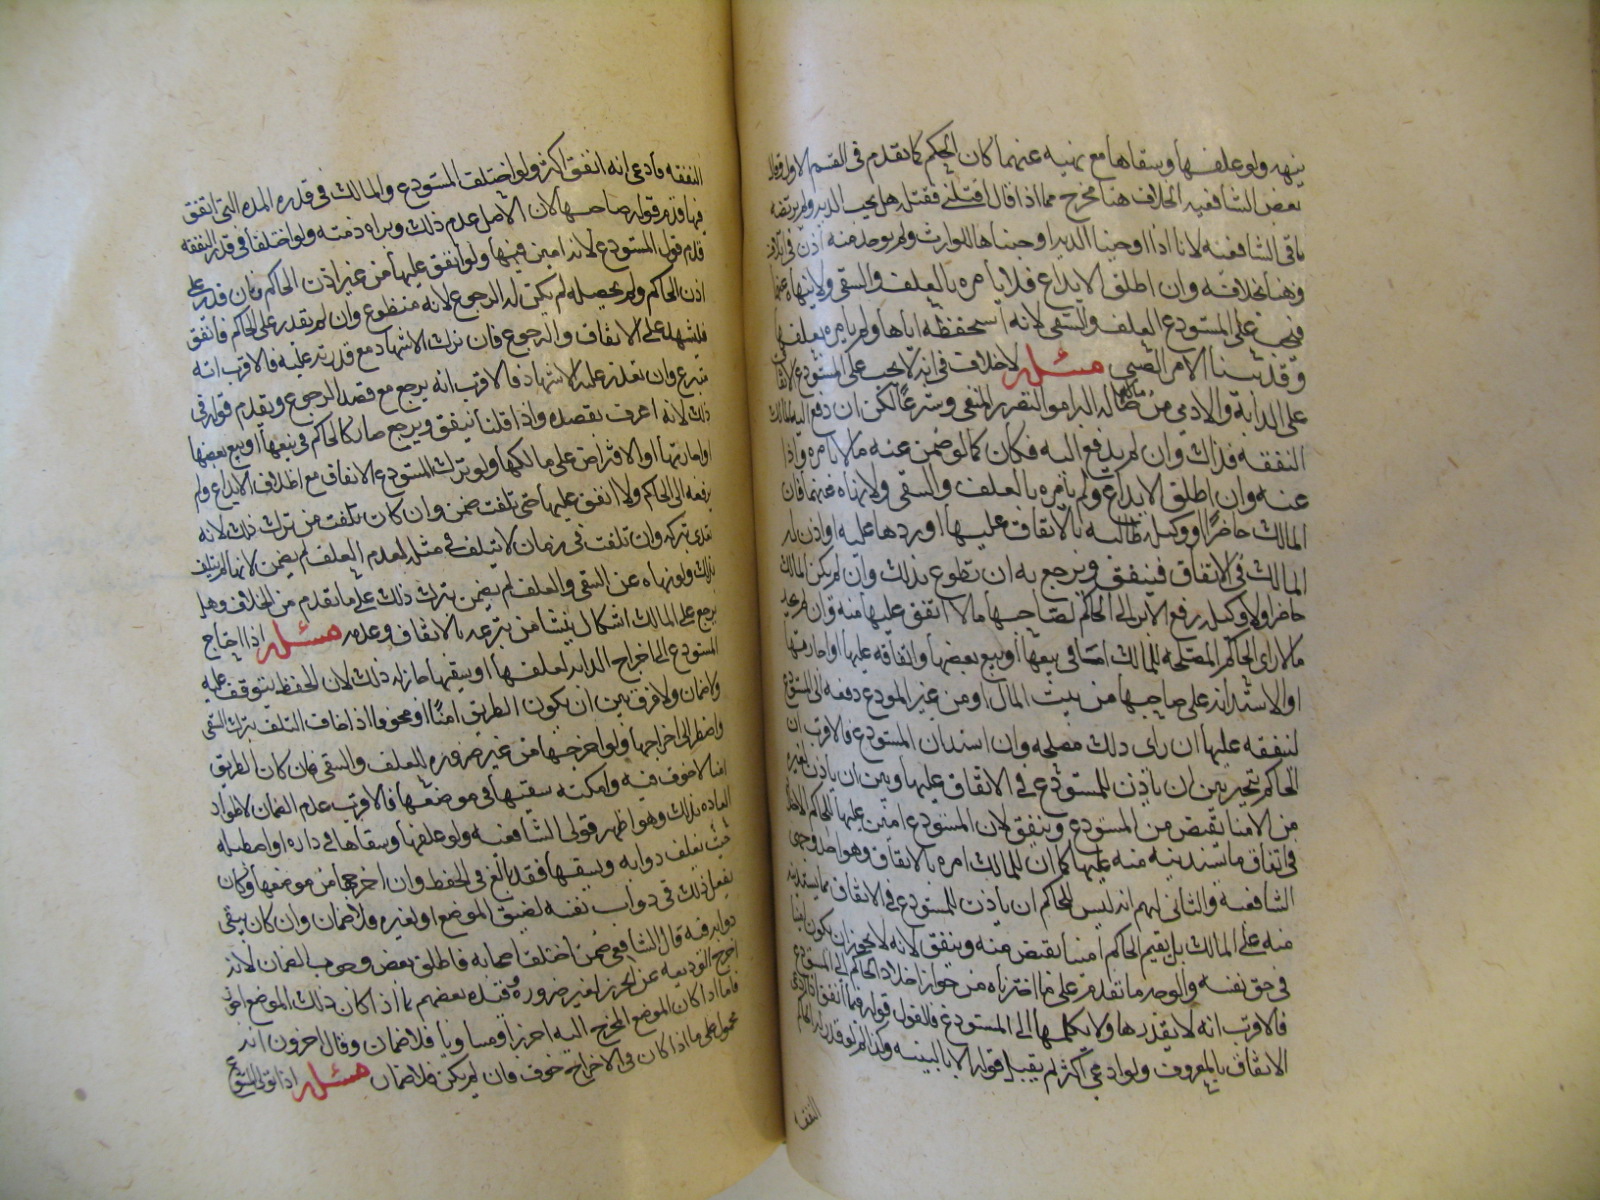 ينهه ولو علفها وسقاها مع نهيه عنهما كان الحكم كما تقدم في القسم الاول وقال
بعض الشافعيه الخلاف هنا مخرج مما اذا قال اقتلني فقتله هل تجب الديه ولم يرتضه
باقي الشافعيه لانا اذا اوجبنا الديه اوجبناها للوارث ولم يوجد منه اذن في
وهنا بخلافه وان اطلق الايداع فلا يامره بالعلف والسقي ولا ينهاه عنهما
فيجب على المستودع العلف والسقي لانه استحفظه اياها ولم يامره بعلفها
مسئله لا خلاف في انه لا يجب على المستودع الانفاق
على الدابه والادمي من ماله لكن ان دفع اليه المالك
النفقه فذاك وان لم يدفع اليه فكان كما لو ضمن عنه مالا بامره واذا
عنه وان اطلق الايداع ولم يامره بالعلف والسقي ولا نهاه عنهما فان
المالك حاضرا او وكيله طالبه بالانفاق عليها او ردها عليه او اذن له
المالك في الانفاق فينفق ويرجع به ان تطوع بذلك وان لم يكن المالك
حاضرا ولا وكيله رفع الامر الى الحاكم لصاحبها مالا انفق عليها منه وان لم يجد
مالا راى الحاكم المصلحه للمالك اما في بيعها او بيع بعضها وانفاقه عليها او اجارتها
او الاستدانه على صاحبها من بيت المال او من غير المودع دفعه الى المستودع
لينفقه عليها ان راى ذلك مصلحه وان استدان المستودع فالاقرب ان
الحاكم يتخير بين ان ياذن للمستودع في الانفاق عليها وبين ان ياذن لغيره
من الامنا يقبض من المستودع وينفق لان المستودع امين عليها
في انفاق ما استدينه منه عليها كما ان للمالك امره بالانفاق وهو احد وجهي
الشافعيه والثاني لهم انه ليس للحاكم ان ياذن للمستودع في الانفاق مما يستدينه
منه على المالك بل يقيم الحاكم امينا يقبض منه وينفق لانه لا يجوز ان يكون امينا
في حق نفسه والوجه ما تقدم على ما اخترناه من جواز
فالاقرب انه لا يقدرها ولا يكلها الى المستودع فالقول قوله فيما انفق
الانفاق بالمعروف ولو ادعى اكثر لم يقبل قوله الا بالبينه وكذا لو قدر له الحاكم
النفقه
النفقه فادعى انه انفق اكثر ولو اختلف المستودع والمالك في قدره المده التي انفق
فيها قدم قول صاحبها لان الاصل عدم ذلك وبراه ذمته ولو اختلفا في قدر النفقه
قدم قول المستودع لانه امين فيها ولو انفق عليها من غير اذن الحاكم فان قدر على
اذن الحاكم ولم يحصله لم يكن له الرجوع لانه متطوع وان لم يقدر على الحاكم فانفق
فليشهد على الانفاق والرجوع فان ترك الاشهاد مع قدرته عليه فالاقرب انه
تبرع وان تعذر عليه الاشهاد فالاقرب انه يرجع مع قصد الرجوع ويقدم قوله في
ذلك لانه اعرف بقصده واذا قلنا ينفق ويرجع صار كالحاكم في بيعها او بيع بعضها
او اجارتها او الاقتراض على مالكها ولو ترك المستودع الانفاق مع اطلاق الايداع ولم
يرفعه الى الحاكم ولا انفق عليها حتى تلفت ضمن وان كان تلفت من ترك ذلك لانه
تعدى بتركه وان تلفت في زمان لا يتلف في مثله لعدم العلف لم يضمن لانها لم يتلف
بذلك ولو نهاه عن السقي والعلف لم يضمن بترك ذلك على ما تقدم من الخلاف وهل
يرجع على المالك اشكال ينشا من تبرعه بالانفاق وعدمه مسئله اذا احتاج
المستودع الى اخراج الدابه لعلفها او سقيها جاز له ذلك لان الحفظ يتوقف عليه
ولا ضمان ولا فرق بين ان يكون الطريق امنا او مخوفا اذا خاف التلف بترك السقي
واضطر الى اخراجها ولو اخرجها من غير ضروره للعلف والسقي فان كان الطريق
امنا لا خوف فيه وامكنه سقيها في موضعها فالاقرب عدم الضمان لاطراد
العاده بذلك وهو اظهر قولي الشافعيه ولو علفها وسقاها في داره او اصطبله
حيث يعلف دوابه ويسقيها فقد بالغ في الحفظ وان اخرجها من موضعها وكان
يفعل ذلك في دواب نفسه لضيق الموضع او لغيره فلا ضمان وان كان يسقي
دوابه فيه قال الشافعي ضمن اختلف اصحابه فاطلق بعض وجوب الضمان لانه
اخرج الوديعه عن الحرز لغير ضروره وقيده بعضهم بما اذا كان ذلك الموضع احرز
فاما اذا كان الموضع المخرج اليه احرز او مساويا فلا ضمان وقال اخرون انه
محمول على ما اذا كان في الاخراج خوف فان لم يكن فلا ضمان مسئله اذا تولى المستودع